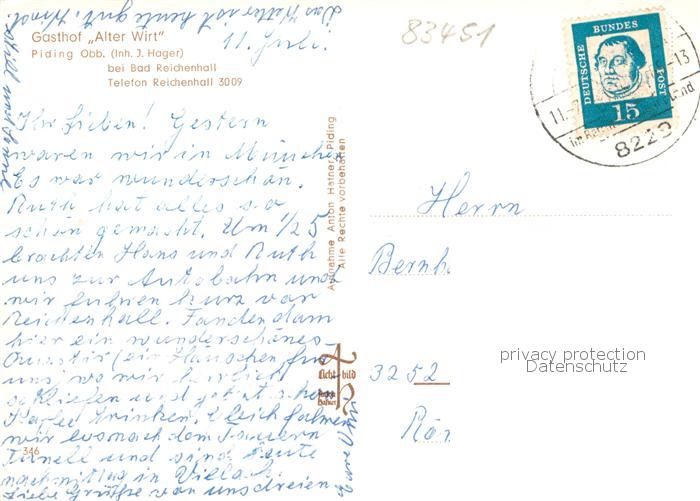 Das Wetter ist heute gut.
83451
Gasthof „Alter Wirt"
Piding Obb. (Inh. J. Hager)
bei Bad Reichenhall
Telefon Reichenhall 3009
11. Juli.
Ihr Lieben! Gestern
waren wir in München
Es war wunderschön.
Ruth hat alles so
schön gemacht. Um 1/2 5
brachten Hans und Ruth
uns zur Autobahn und
wir fuhren kurz vor
Reichenhall. Fanden dann
hier ein wunderschönes
Quartier (ein Häuschen für
uns, wo wir herrlich
schliefen und jetzt schon
Kaffee trinken. Gleich fahren
wir los nach dem Tauern
Tunell und sind heute
nachmittag in Villach.
Liebe Grüße von uns dreien
346
Aufnahme Anton Hafner, Piding
Alle Rechte vorbehalten
Licht bild
Hafner
DEUTSCHE BUNDES POST
15
11.
-13
8229
Herrn
Bernh
3252
privacy protection
Datenschutz